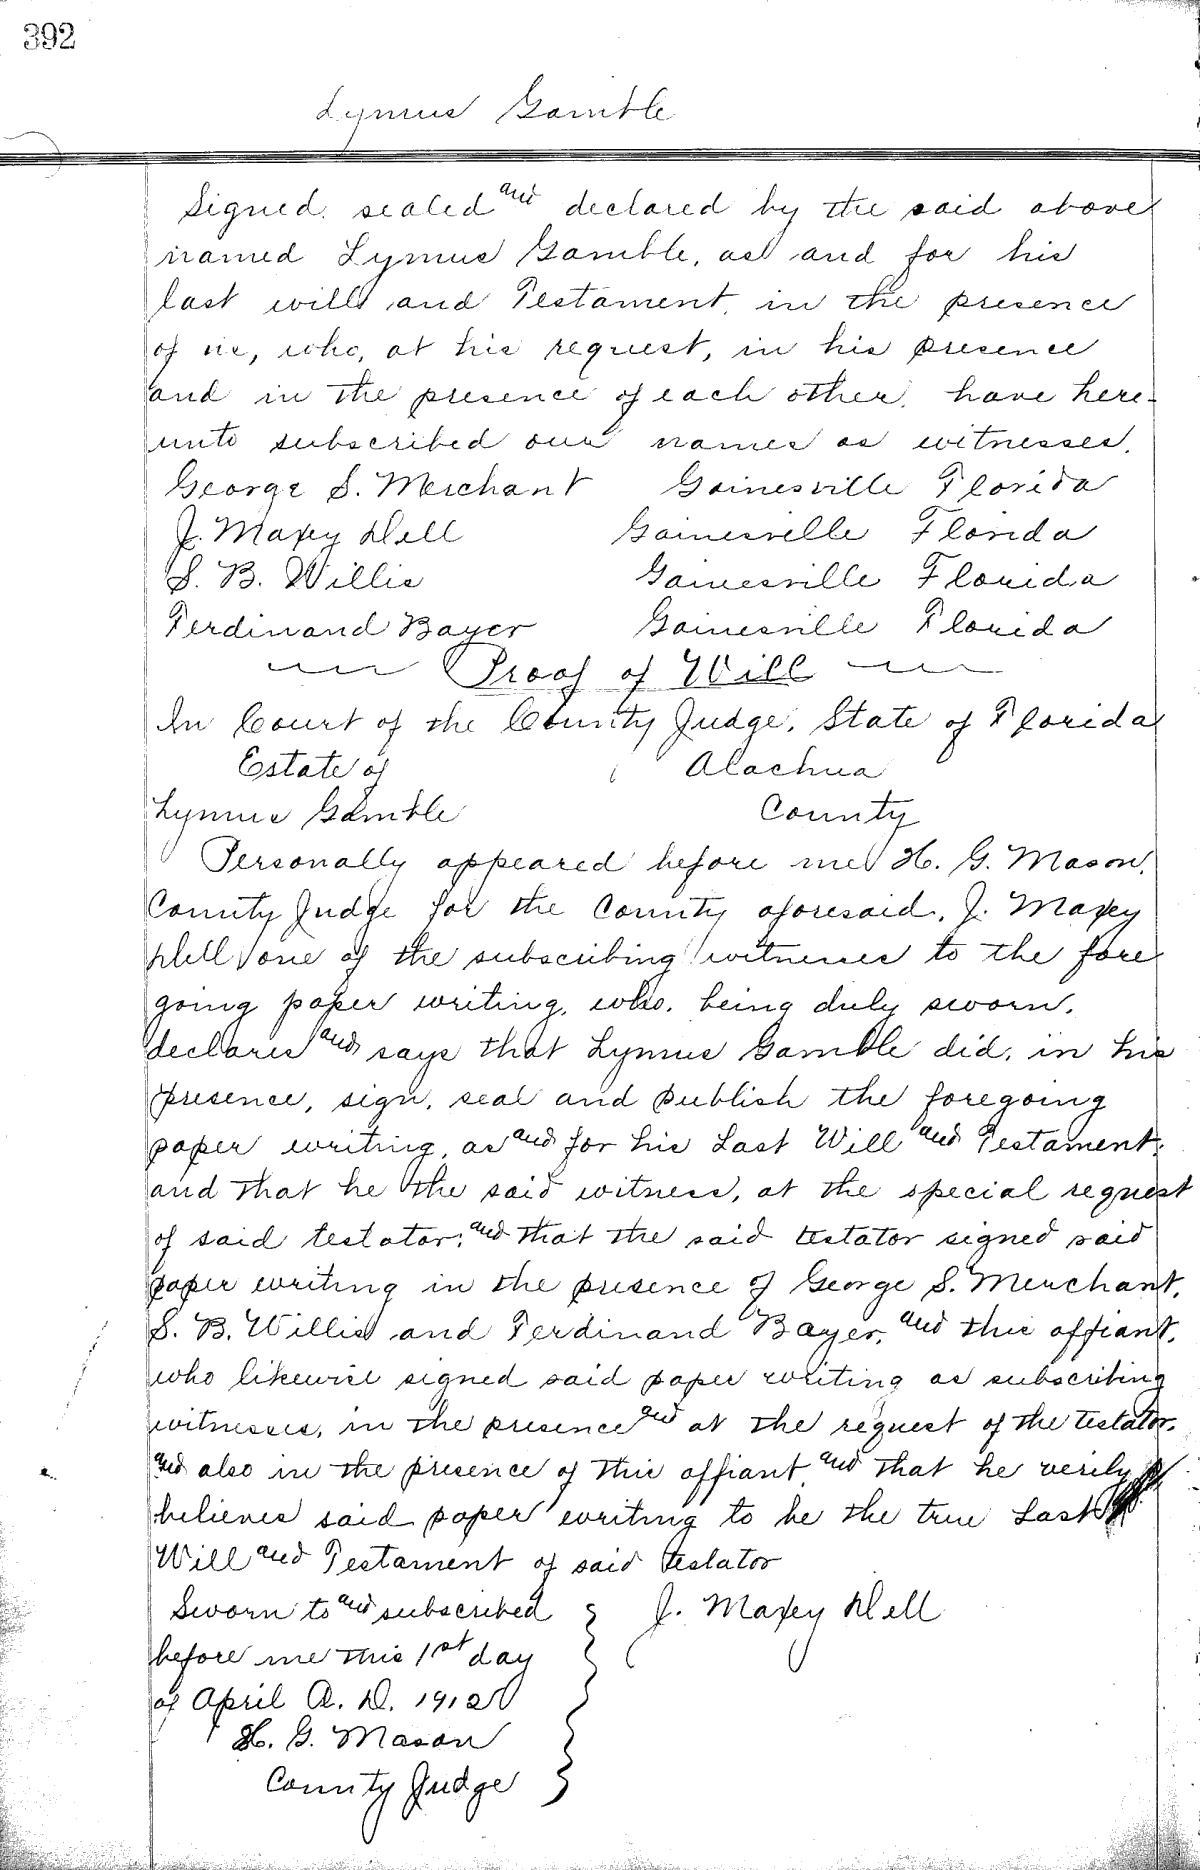 392
Lymus Gamble
Signed. sealed and declared by the said above
named Lymus Gamble, as and for his
last will and Testament, in the presence
of us, who, at his request, in his presence
and in the presence of each other, have here-
unto subscribed our names as witnesses.
George S. Merchant Gainesville Florida
J. Maxey Dell Gainesville Florida
S. B. Willis Gainesville Florida
Ferdinand Bayer Gainesville Florida
Proof of Will
In Court of the County Judge, State of Florida
Estate of Alachua
Lymus Gamble County
Personally appeared before me H. G. Mason,
County Judge for the County aforesaid, J. Maxey
Dell one of the subscribing witnesses to the fore
going paper writing, who, being duly sworn,
declares and says that Lymus Gamble did, in his
presence, sign, seal and publish the foregoing
paper writing, as and for his Last Will and Testament;
and that he the said witness, at the special request
of said testator; and that the said testator signed said
paper writing in the presence of George S. Merchant,
S. B. Willis and Ferdinand Bayer, and this affiant,
who likewise signed said paper writing as subscribing
witnesses, in the presence and at the request of the testator,
and also in the presence of this affiant, and that he verily
believes said paper writing to be the true Last
Will and Testament of said testator
Sworn to and subscribed J. Maxey Dell
before me this 1st day
of April A. D. 1912
H. G. Mason
County Judge